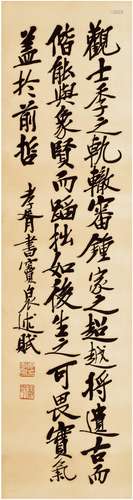 觀士季之軌轍審鍾家之超越將遺古而
偕能與象賢而蹈拙如後生之可畏實氣
蓋於前哲
孝胥書竇臮述賦